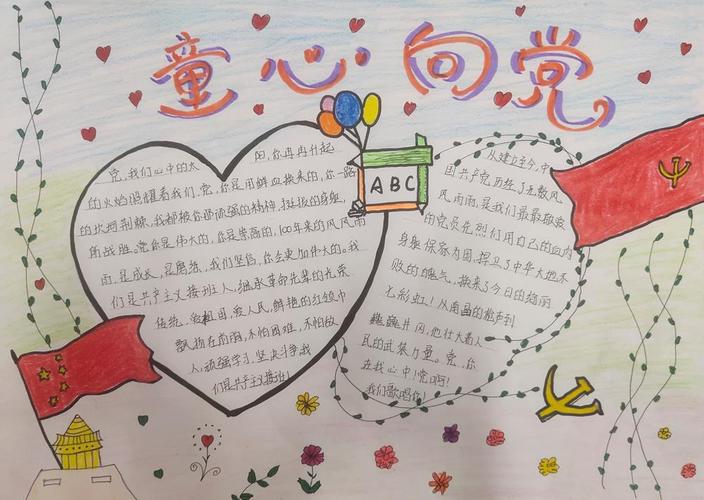 童心向党
ABC
党,我们心中的太阳,你冉冉升起
的火焰照耀着我们,党,你是用鲜血换来的,你一路
的坎坷荆棘,我都被你顽强的精神,挺拔的身躯,
所战胜。党你是伟大的,你是崇高的,100年来的风风雨
雨,是成长,是磨练,我们坚信,你会更加伟大的。我
们是共产主义接班人,继承革命先辈的光荣
传统,爱祖国,爱人民,鲜艳的红领巾
飘扬在前胸,不怕困难,不怕敌
人,顽强学习,坚决斗争,我
们是共产主义接班人!
从建立至今,中
国共产党历经了无数风
风雨雨,是我们最最敬爱
的党员先烈们用自己的血肉
身躯保家为国,捍卫了中华大地不
败的 气,换来了今日的绚丽
七彩虹!从南昌的枪声到
巍巍井冈,他壮大着人
民的武装力量。党,你
在我心中!党啊!
我们歌唱你!